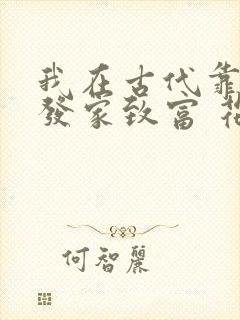 我在古代靠
發家致富
何智麗